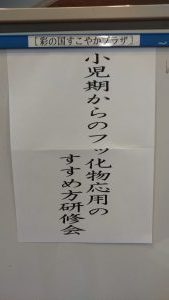 ［彩の国すこやかプラザ］
小児期からのフッ化物応用の
すすめ方研修会